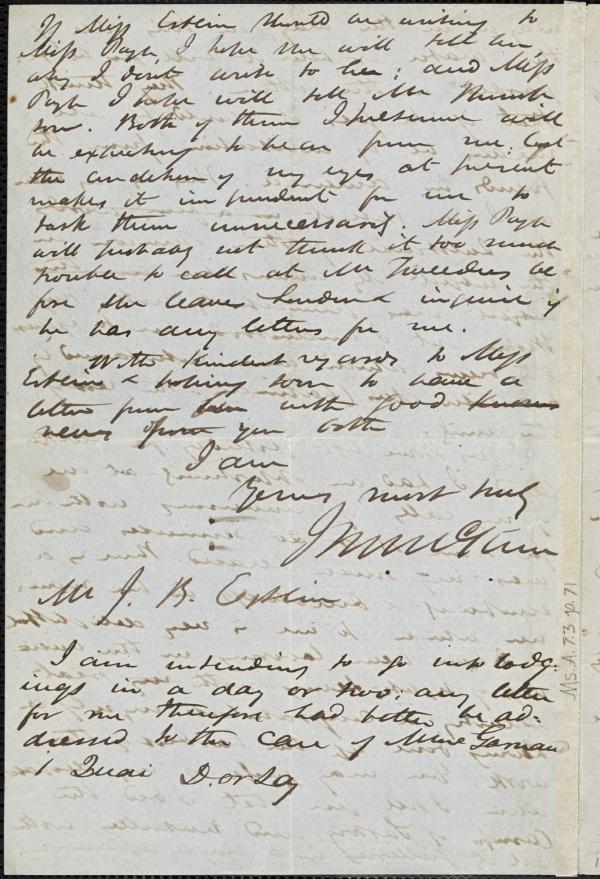 If Miss Estlin should be writing to
Miss Pugh I hope she will tell her,
why I don't write to her; and Miss
Pugh I hope will tell Mr
son. Both of them I presume will
be expecting to hear from me; but
the condition of my eyes at present
makes it imprudent for me to
task them unnecessarily. Miss Pugh
will probably not think it too much
trouble to call at Mr Tweedies be
fore she leaves London & inquire if
he has any letters for me.
With kindest regards to Miss
Estlin & hoping soon to have a
letter from with good
news from you both
I am
Yours most truly
J M McKim
Mr J. B. Estlin
I am intending to go into lodg-
ings in a day or two; any letter
for me therefore had better be ad-
dressed to the care of Mme
1 Quai D'orsay
Ms. A. 7.3 p. 71